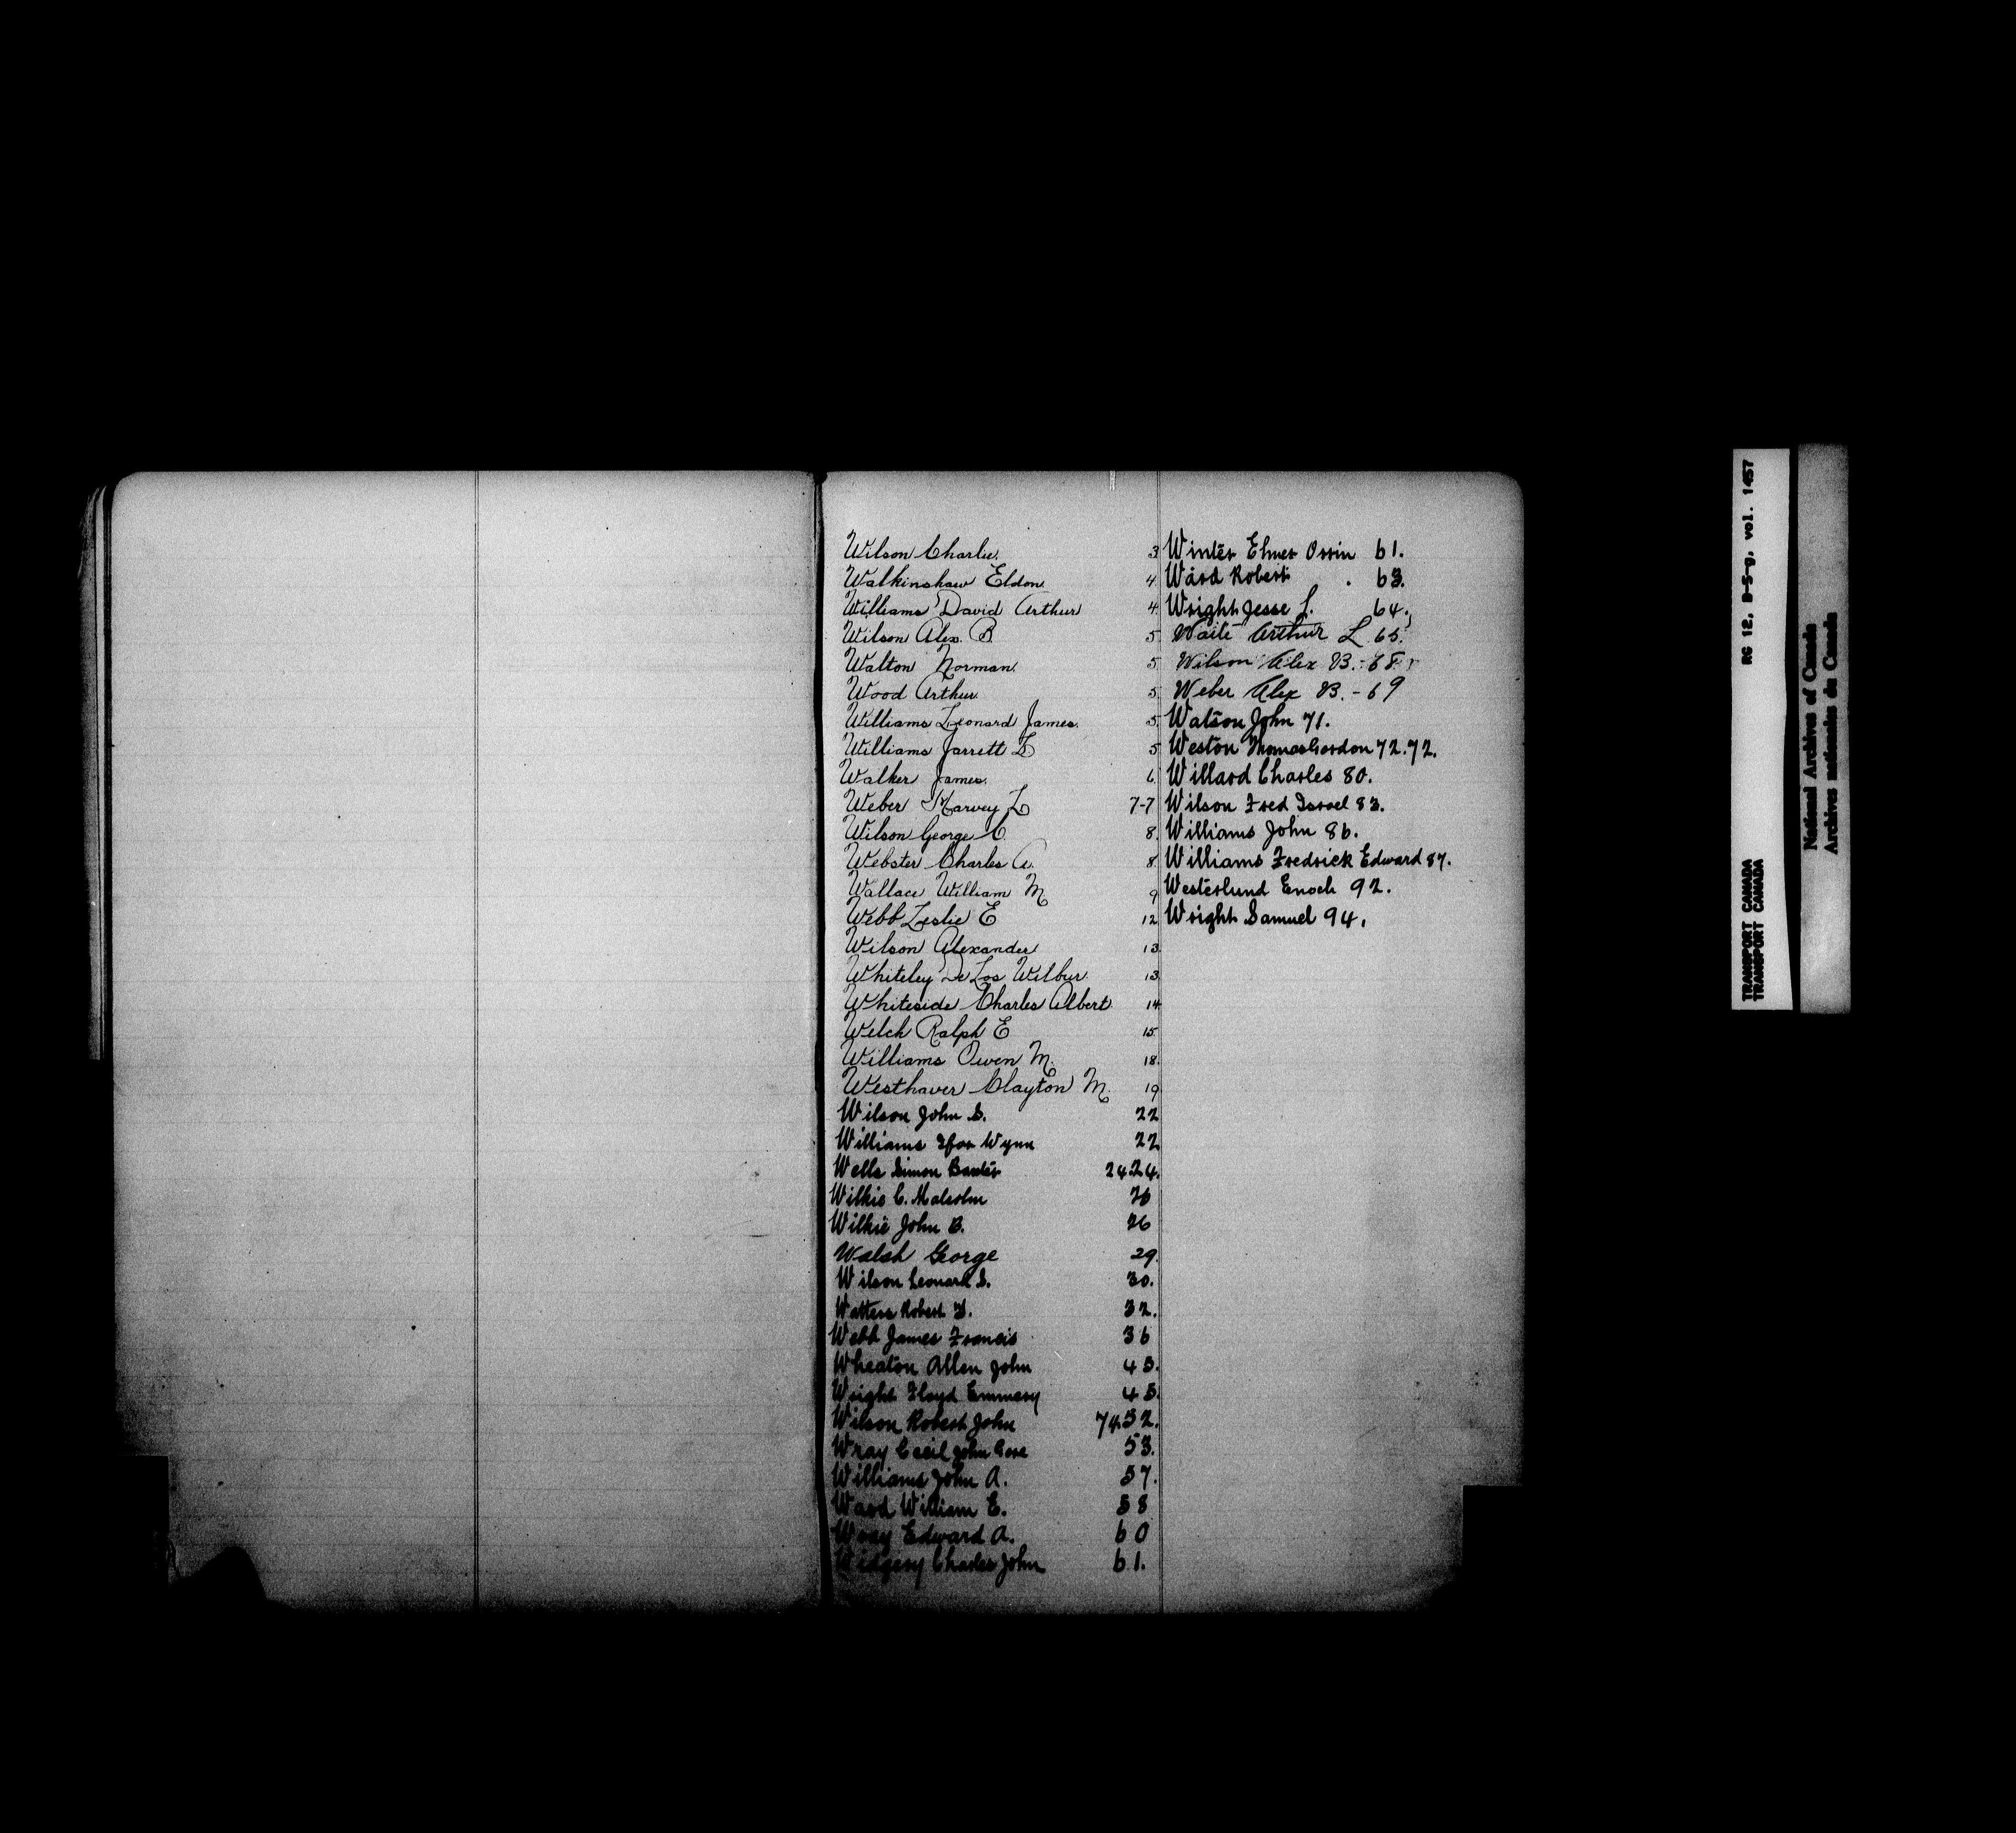 Wilson Charlie. 3
Walkinshaw Eldon 4.
Williams David Arthur 4.
Wilson Alex. B. 5
Walton Norman. 5.
Wood Arthur. 5.
Williams Leonard James. 5.
Williams Jarrett L 5
Walker James. 6.
Weber Harvey L 7-7
Wilson George C. 8.
Webster Charles A. 8.
Wallace William M 9
Webb Leslie E 12
Wilson Alexander 13.
Whiteley De Los Wilbur. 13.
Whiteside Charles Albert 14
Welch Ralph E 15.
Williams Owen M. 18.
Westhaver Clayton M. 19
Wilson John S. 22
Williams Ifor Wynn 22
Wells Simon Baxter 24.24.
Wilkie C. Malcolm 26
Wilkie John B. 26
Walsh George 29.
Wilson Leonard S. 30.
Watters Robert 32.
Webb James Francis 36
Wheaton Allen John 45.
Wright Floyd Emmery 45.
Wilson Robert John 74.52.
Wray Cecil John 53.
Williams John A. 57.
Ward William E. 58
Wray Edward A. 60
Widgery Charles John 61.
Winter Elmer Orrin 61.
Ward Robert . 63.
Wright Jesse L. 64.
Waite Arthur L 65.
Wilson Alex B. - 68
Weber Alex B. - 69
Watson John 71.
Weston Thomas Gordon 72.72.
Willard Charles 80.
Wilson Fred Israel 83.
Williams John 86.
Williams Fredrick Edward 87.
Westerlund Enoch 92.
Wright Samuel 94.
RG 12, B-5-g, vol. 1457
TRANSPORT CANADA
TRANSPORT CANADA
National Archives of Canada
Archives nationales du Canada